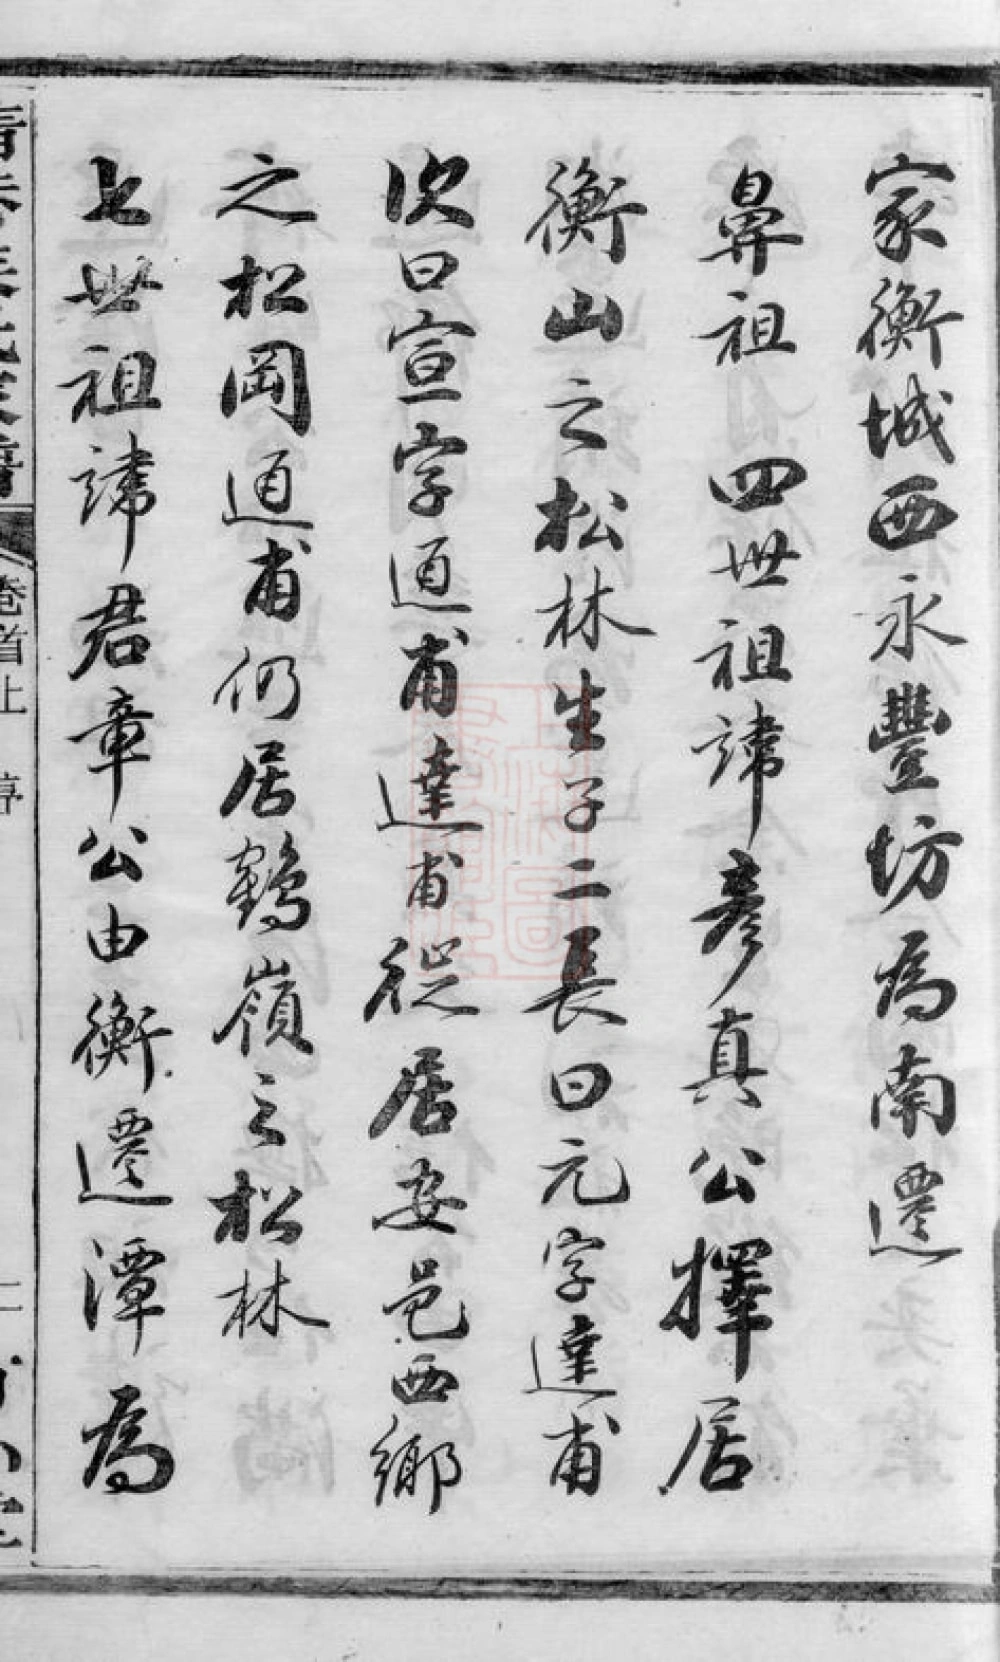 家衡城西永豐坊為南遷
鼻祖四世祖諱彥真公擇居
衡山之松林生子二長曰元字達甫
次曰宣字通甫達甫徙居安邑西鄉
之松岡通甫仍居鶴嶺之松林
七世祖諱君章公由衡遷潭為
卷首上 序